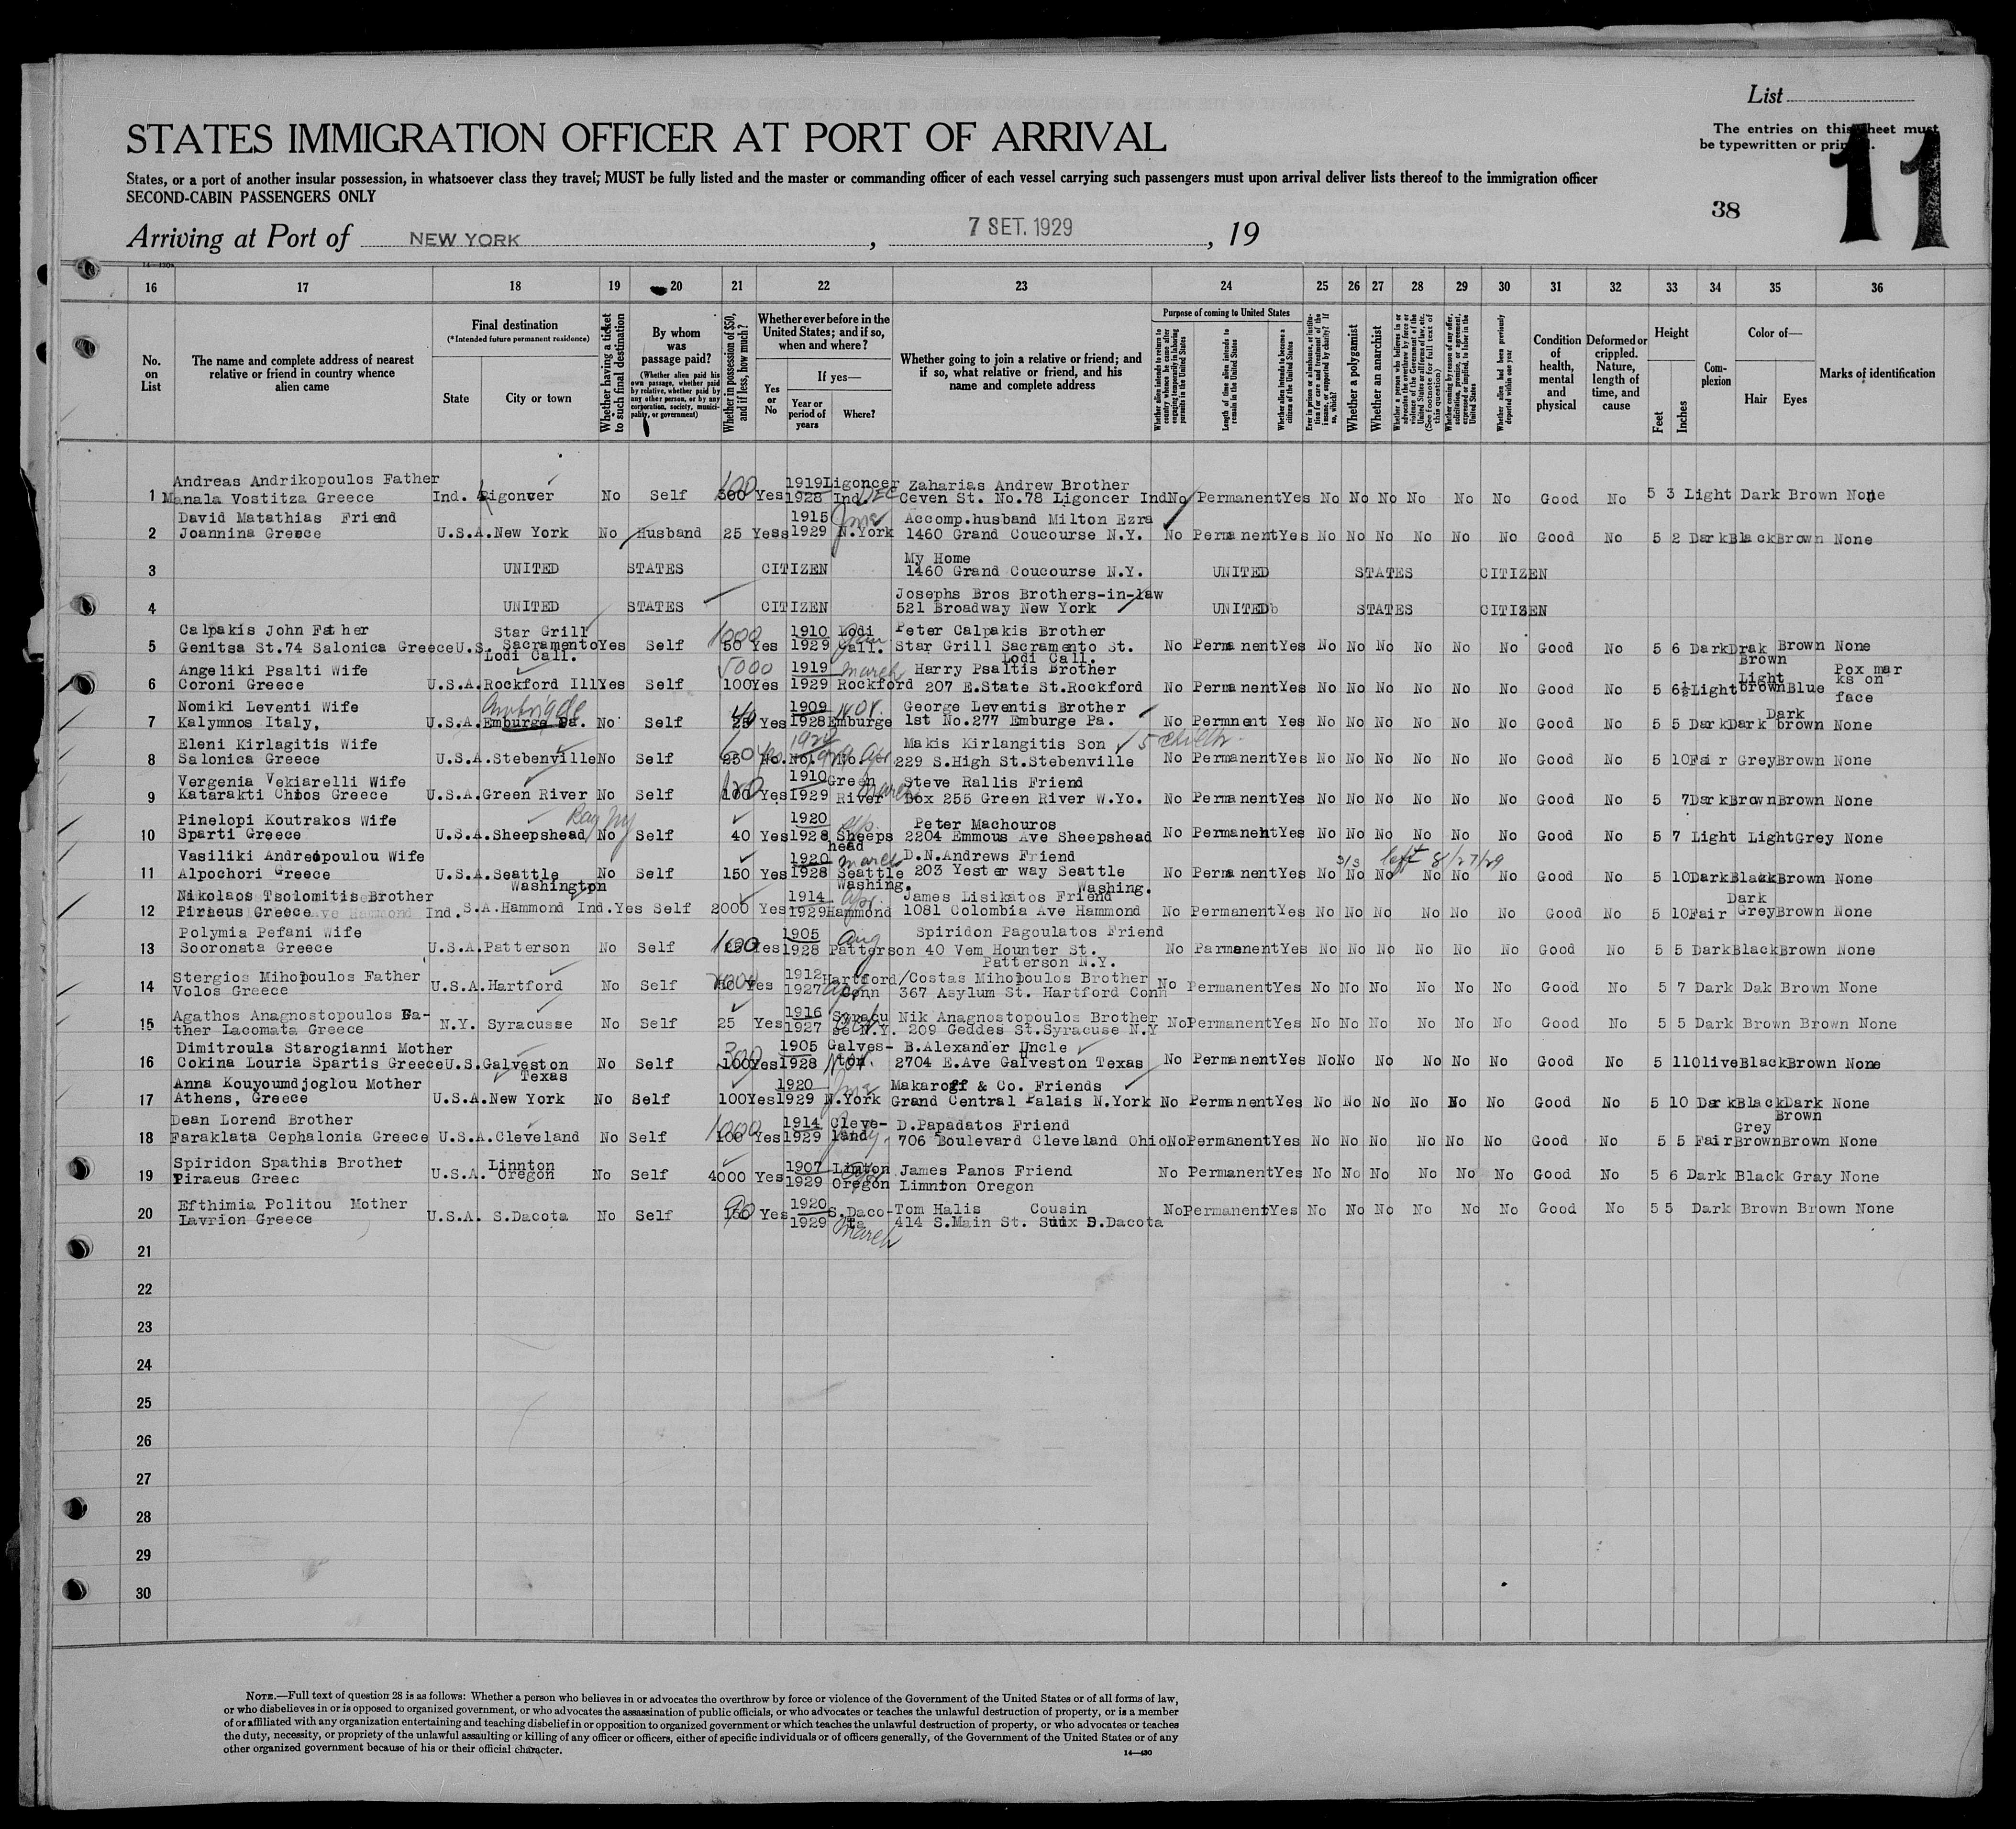 List
STATES IMMIGRATION OFFICER AT PORT OF ARRIVAL
The entries on this sheet must
be typewritten or printed.
11
States, or a port of another insular possession, in whatsoever class they travel, MUST be fully listed and the master or commanding officer of each vessel carrying such passengers must upon arrival deliver lists thereof to the immigration officer
SECOND-CABIN PASSENGERS ONLY
38
Arriving at Port of NEW YORK , 7 SET. 1929 , 19
14—430
16 17 18 19 20 21 22 23 24 25 26 27 28 29 30 31 32 33 34 35 36
No. on List
The name and complete address of nearest relative or friend in country whence alien came
Final destination
(*Intended future permanent residence)
State
City or town
Whether having a ticket to such final destination
By whom was passage paid?
(Whether alien paid his own passage, whether paid by relative, whether paid by any other person, or by any corporation, society, municipality, or government)
Whether in possession of $50, and if less, how much?
Whether ever before in the United States; and if so, when and where?
Yes or No
If yes—
Year or period of years
Where?
Whether going to join a relative or friend; and if so, what relative or friend, and his name and complete address
Purpose of coming to United States
Whether alien intends to return to country whence he came after engaging temporarily in laboring pursuits in the United States
Length of time alien intends to remain in the United States
Whether alien intends to become a citizen of the United States
Ever in prison or almshouse, or institution for care and treatment of the insane, or supported by charity? If so, which?
Whether a polygamist
Whether an anarchist
Whether a person who believes in or advocates the overthrow by force or violence of the Government of the United States or all forms of law, etc. (See footnote for full text of this question)
Whether coming by reason of any offer, solicitation, promise, or agreement, expressed or implied, to labor in the United States
Whether alien had been previously deported within one year
Condition of health, mental and physical
Deformed or crippled. Nature, length of time, and cause
Height
Feet
Inches
Complexion
Color of—
Hair
Eyes
Marks of identification
Andreas Andrikopoulos Father 1919 Ligoncer Zaharias Andrew Brother
1 Manala Vostitza Greece Ind. Ligoncer No Self 100 Yes 1928 Ind. Dec Ceven St. No.78 Ligoncer Ind No Permanent Yes No No No No No No Good No 5 3 Light Dark Brown None
David Matathias Friend 1915 June Accomp.husband Milton Ezra
2 Joannina Greece U.S.A. New York No Husband 25 Yess 1929 N.York 1460 Grand Coucourse N.Y. No Permanent Yes No No No No No No Good No 5 2 Dark Black Brown None
My Home
3 UNITED STATES CITIZEN 1460 Grand Coucourse N.Y. UNITED STATES CITIZEN
Josephs Bros Brothers-in-law
4 UNITED STATES CITIZEN 521 Broadway New York UNITED STATES CITIZEN
Calpakis John Father Star Grill 1000 1910 Lodi Peter Calpakis Brother
5 Genitsa St.74 Salonica Greece U.S. Sacramento Yes Self 50 Yes 1929 Call. Star Grill Sacramento St. No Permanent Yes No No No No No No Good No 5 6 Dark Drak Brown None
Lodi Call. Lodi Call. Brown
Angeliki Psalti Wife 5000 1919 March Harry Psaltis Brother Light Pox mar
6 Coroni Greece U.S.A. Rockford Ill Yes Self 100 Yes 1929 Rockford 207 E.State St.Rockford No Permanent Yes No No No No No No Good No 5 6½ Light brown Blue ks on
face
Nomiki Leventi Wife Ambridge 1909 Nov. George Leventis Brother Dark
7 Kalymnos Italy, U.S.A. Emburge Pa. No Self 25 Yes 1928 Emburge 1st No.277 Emburge Pa. No Permnent Yes No No No No No No Good No 5 5 Dark Dark brown None
Eleni Kirlagitis Wife 60 Makis Kirlangitis Son 5 childr.
8 Salonica Greece U.S.A. Stebenville No Self 25 No. No. No. Apr 229 S.High St.Stebenville No Permanent Yes No No No No No No Good No 5 10 Fair Grey Brown None
Vergenia Vekiarelli Wife 1910 Green Steve Rallis Friend
9 Katarakti Chios Greece U.S.A. Green River No Self 100 Yes 1929 River March Box 255 Green River W.Yo. No Permanent Yes No No No No No No Good No 5 7 Dark Brown Brown None
Pinelopi Koutrakos Wife Bay NY 1920 Peter Machouros
10 Sparti Greece U.S.A. Sheepshead No Self 40 Yes 1928 Sheeps 2204 Emmous Ave Sheepshead No Permanent Yes No No No No No No Good No 5 7 Light Light Grey None
head
Vasiliki Andreopoulou Wife 1920 March D.N.Andrews Friend 3/3 left 8/27/29
11 Alpochori Greece U.S.A. Seattle No Self 150 Yes 1928 Seattle 203 Yester way Seattle No Permanent Yes No No No No No No Good No 5 10 Dark Black Brown None
Washington Washing. Washing.
Nikolaos Tsolomitis Brother 1914 Apr. James Lisikatos Friend Dark
12 Piraeus Greece Ind. S.A. Hammond Ind. Yes Self 2000 Yes 1929 Hammond 1081 Colombia Ave Hammond No Permanent Yes No No No No No No Good No 5 10 Fair Grey Brown None
Polymia Pefani Wife 1905 Aug Spiridon Pagoulatos Friend
13 Sooronata Greece U.S.A. Patterson No Self 100 Yes 1928 Patterson 40 Vem Hounter St. No Parmanent Yes No No No No No No Good No 5 5 Dark Black Brown None
Patterson N.Y.
Stergios Mihopoulos Father 1912 Hartford /Costas Mihopoulos Brother
14 Volos Greece U.S.A. Hartford No Self Yes 1927 Conn 367 Asylum St. Hartford Conn No Permanent Yes No No No No No No Good No 5 7 Dark Dak Brown None
Agathos Anagnostopoulos Fa- 1916 Syracu Nik Anagnostopoulos Brother
15 ther Lacomata Greece N.Y. Syracusse No Self 25 Yes 1927 se N.Y. 209 Geddes St.Syracuse N.Y No Permanent Yes No No No No No No Good No 5 5 Dark Brown Brown None
Dimitroula Starogianni Mother 300 1905 Galves- B.Alexander Uncle
16 Cokina Louria Spartis Greece U.S. Galveston No Self 100 Yes 1928 ton Nov. 2704 E.Ave Galveston Texas No Permanent Yes No No No No No No Good No 5 11 Olive Black Brown None
Texas
Anna Kouyoumdjoglou Mother 1920 June Makaroff & Co. Friends
17 Athens, Greece U.S.A. New York No Self 100 Yes 1929 N.York Grand Central Palais N.York No Permanent Yes No No No No No No Good No 5 10 Dark Black Dark None
Brown
Dean Lorend Brother 1000 1914 Cleve- D.Papadatos Friend Grey
18 Faraklata Cephalonia Greece U.S.A. Cleveland No Self 100 Yes 1929 land 706 Boulevard Cleveland Ohio No Permanent Yes No No No No No No Good No 5 5 Fair Brown Brown None
Spiridon Spathis Brother Linnton 1907 Linton James Panos Friend
19 Piraeus Greec U.S.A. Oregon No Self 4000 Yes 1929 Oregon Limnton Oregon No Permanent Yes No No No No No No Good No 5 6 Dark Black Gray None
Efthimia Politou Mother 1920 S.Daco- Tom Halis Cousin
20 Lavrion Greece U.S.A. S.Dacota No Self Yes 1929 ta 414 S.Main St. Suix S.Dacota No Permanent Yes No No No No No No Good No 5 5 Dark Brown Brown None
March
21
22
23
24
25
26
27
28
29
30
NOTE.—Full text of question 28 is as follows: Whether a person who believes in or advocates the overthrow by force or violence of the Government of the United States or of all forms of law,
or who disbelieves in or is opposed to organized government, or who advocates the assassination of public officials, or who advocates or teaches the unlawful destruction of property, or is a member
of or affiliated with any organization entertaining and teaching disbelief in or opposition to organized government or which teaches the unlawful destruction of property, or who advocates or teaches
the duty, necessity, or propriety of the unlawful assaulting or killing of any officer or officers, either of specific individuals or of officers generally, of the Government of the United States or of any
other organized government because of his or their official character.
14—430